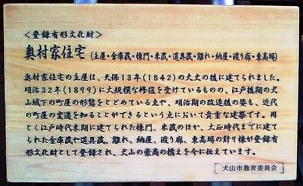 <登録有形文化財>
奥村家住宅（主屋・金庫蔵・棟門・米蔵・道具蔵・離れ・納屋・渡り廊・東高塀）
奥村家住宅の主屋は、天保13年(1842)の大火の後に建てられました。
明治32年(1899)に大規模な修復を受けているものの、江戸後期の犬
山城下の町屋の形態をとどめている点や、明治期の改造後の姿も、近代
の町屋の変遷を知ることができるという点において貴重な建築です。同
じく江戸時代末期に建てられた棟門、米蔵のほか、大正時代までに建て
られた金庫蔵や道具蔵、離れ、納屋、渡り廊、東高塀の計十棟が登録有
形文化財として登録され、犬山の豪商の構えを今に伝えています。
犬山市教育委員会